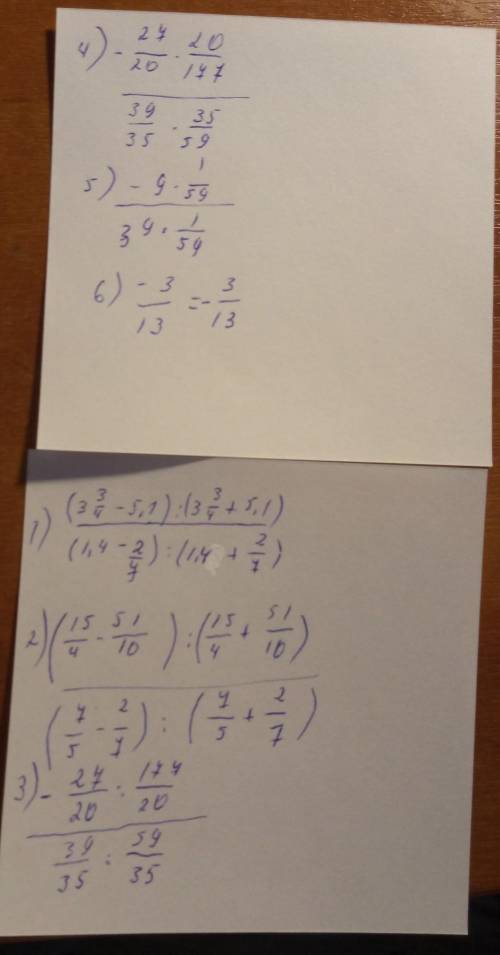 4) - 27/20 · 20/177
39/35 · 35/59
5) - 9 · 1/59
39 · 1/59
6) -3/13 = - 3/13
1) (3 3/4 - 5,1) : (3 3/4 + 5,1)
(1,4 - 2/7) : (1,4 + 2/7)
2) (15/4 - 51/10) : (15/4 + 51/10)
(7/5 - 2/7) : (7/5 + 2/7)
3) - 27/20 : 177/20
39/35 : 59/35